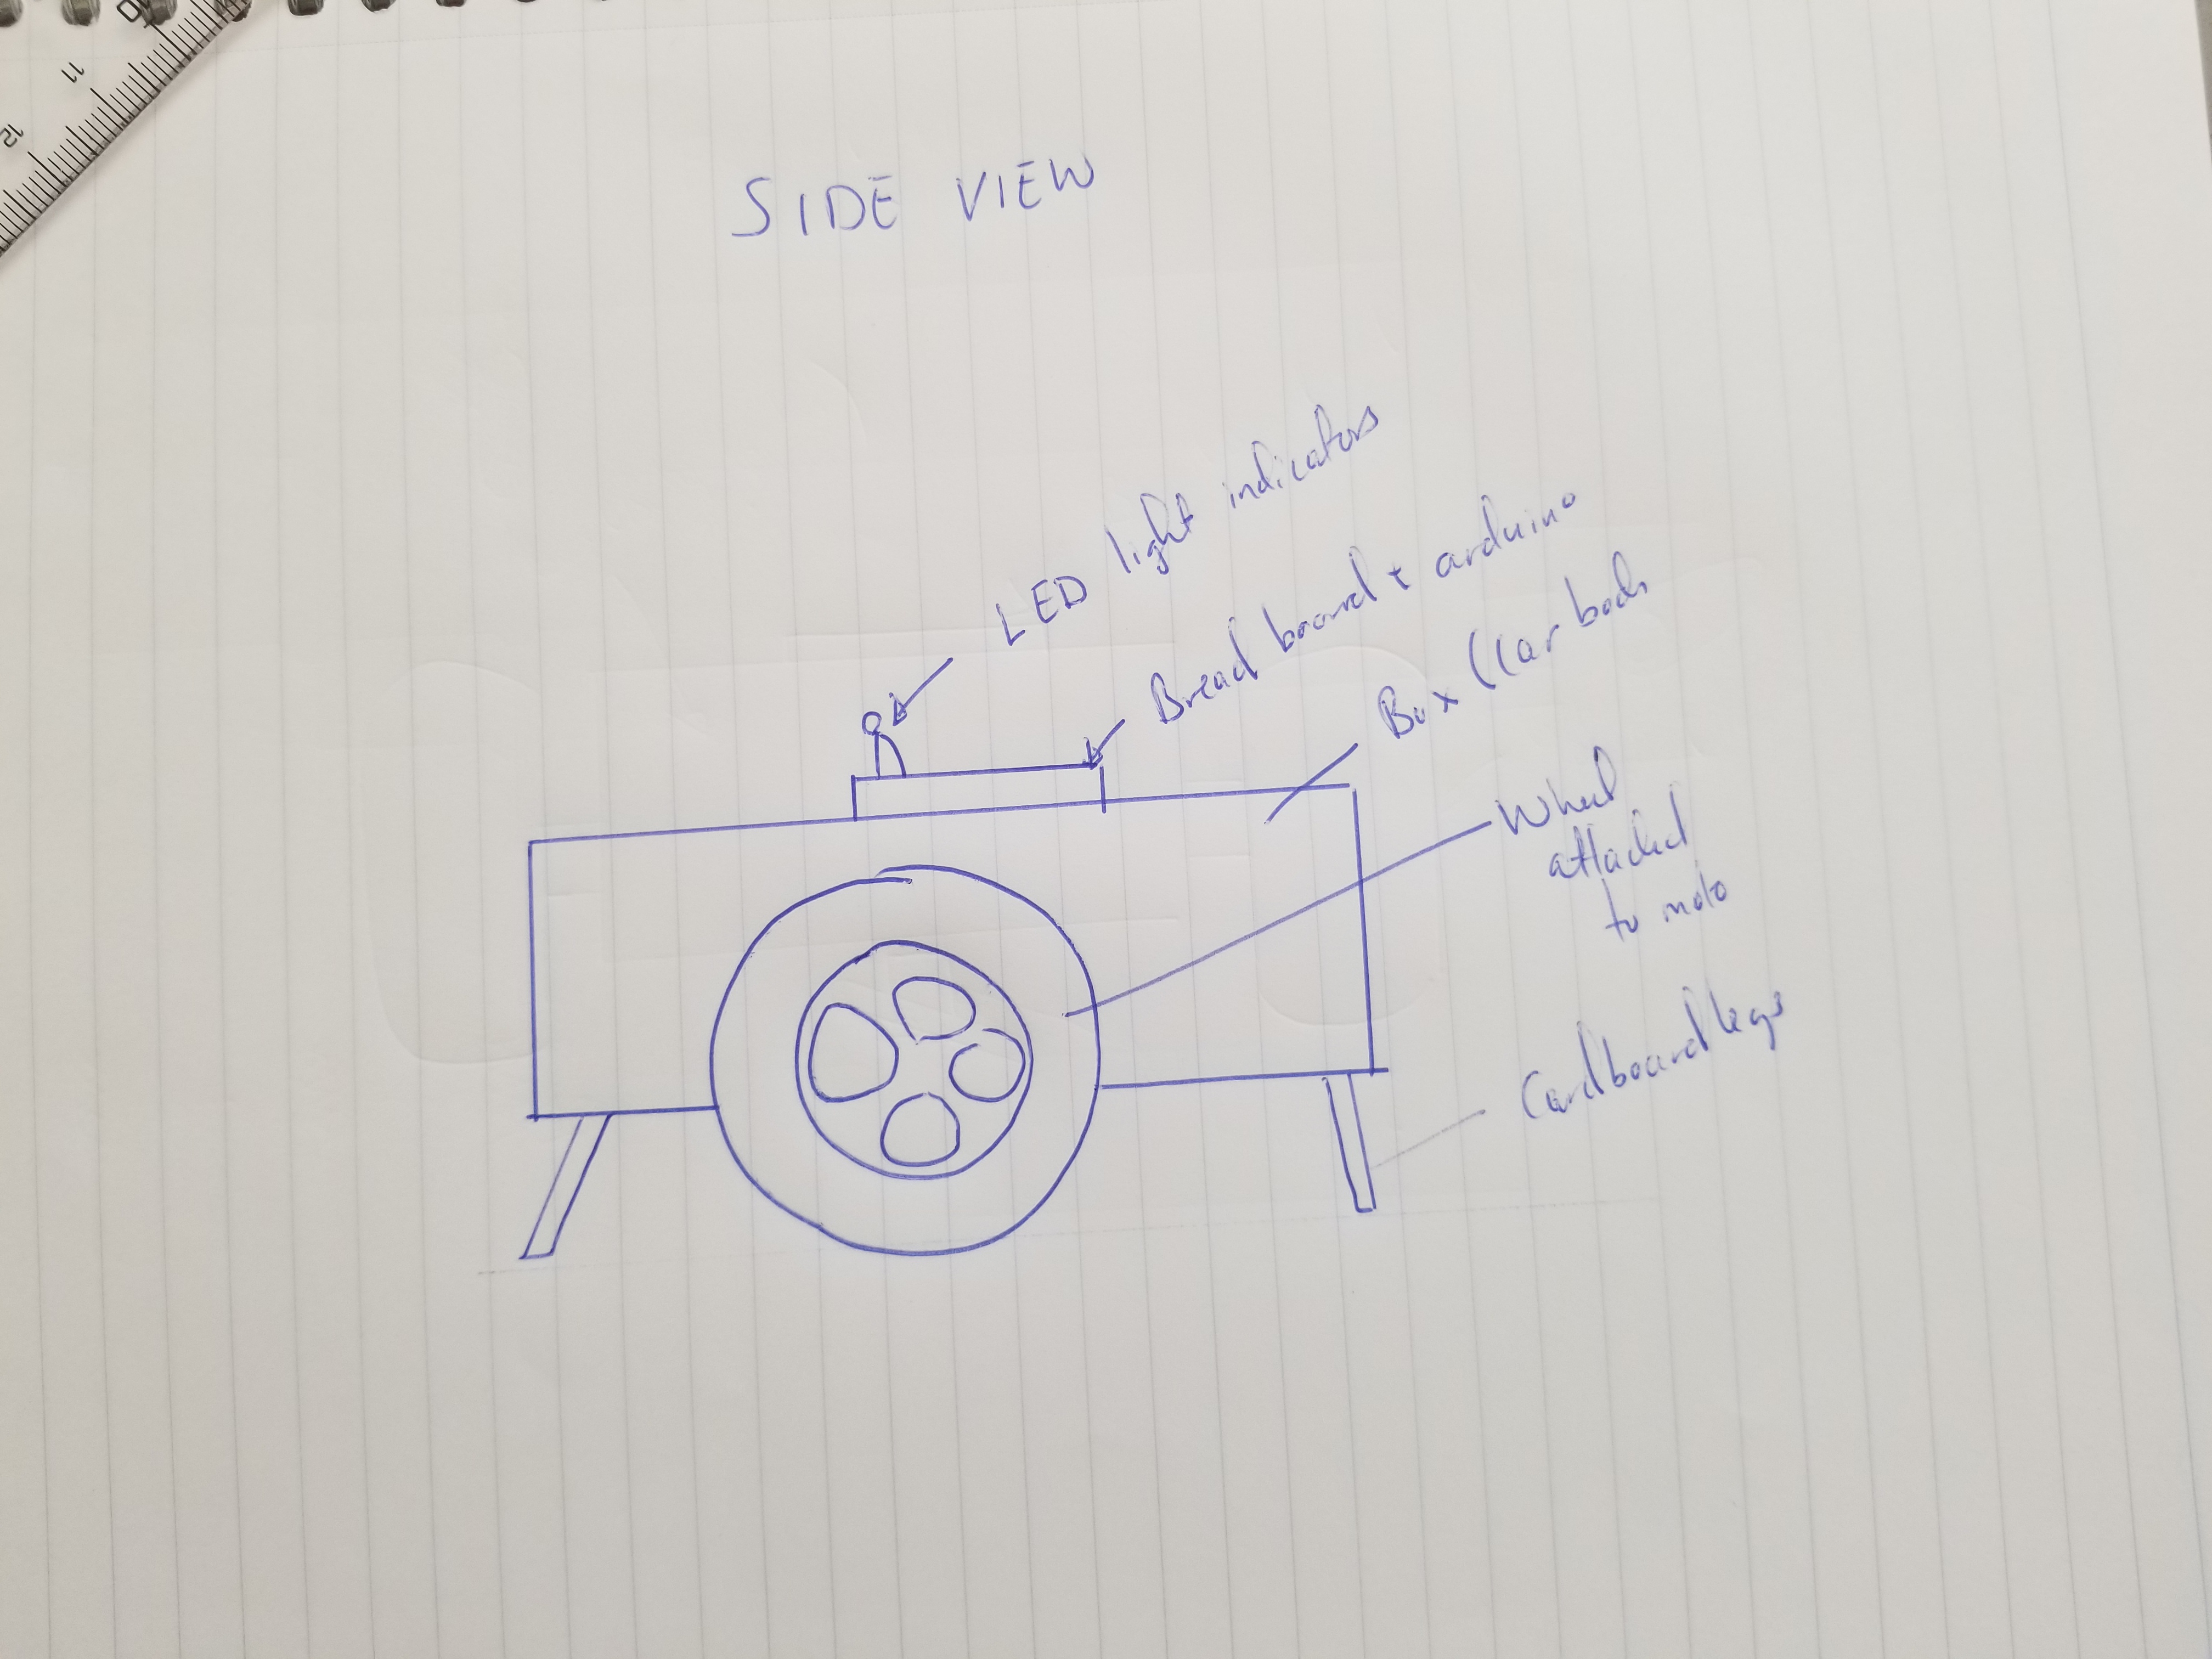 SIDE VIEW
LED light indicators
Bread board + arduino
Box (Car body
Wheel
attached
to moto
Cardboard legs
12
11
10